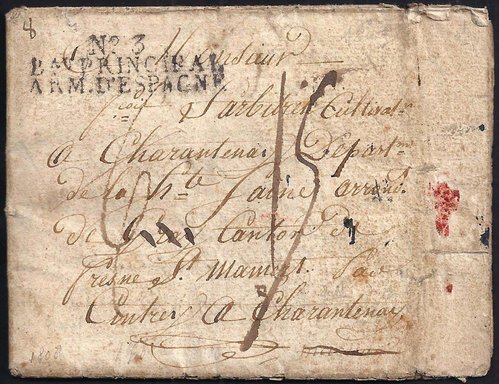 8
No. 3
Bau PRINCIPAL
ARM. D'ESPAGNE
A Monsieur
Cultivatr
A Charantenay Départm
de la hte Saône arrond.
de Grey Canton de
fresne St. Mamest Par
Cintrey A Charantenay
15
1808